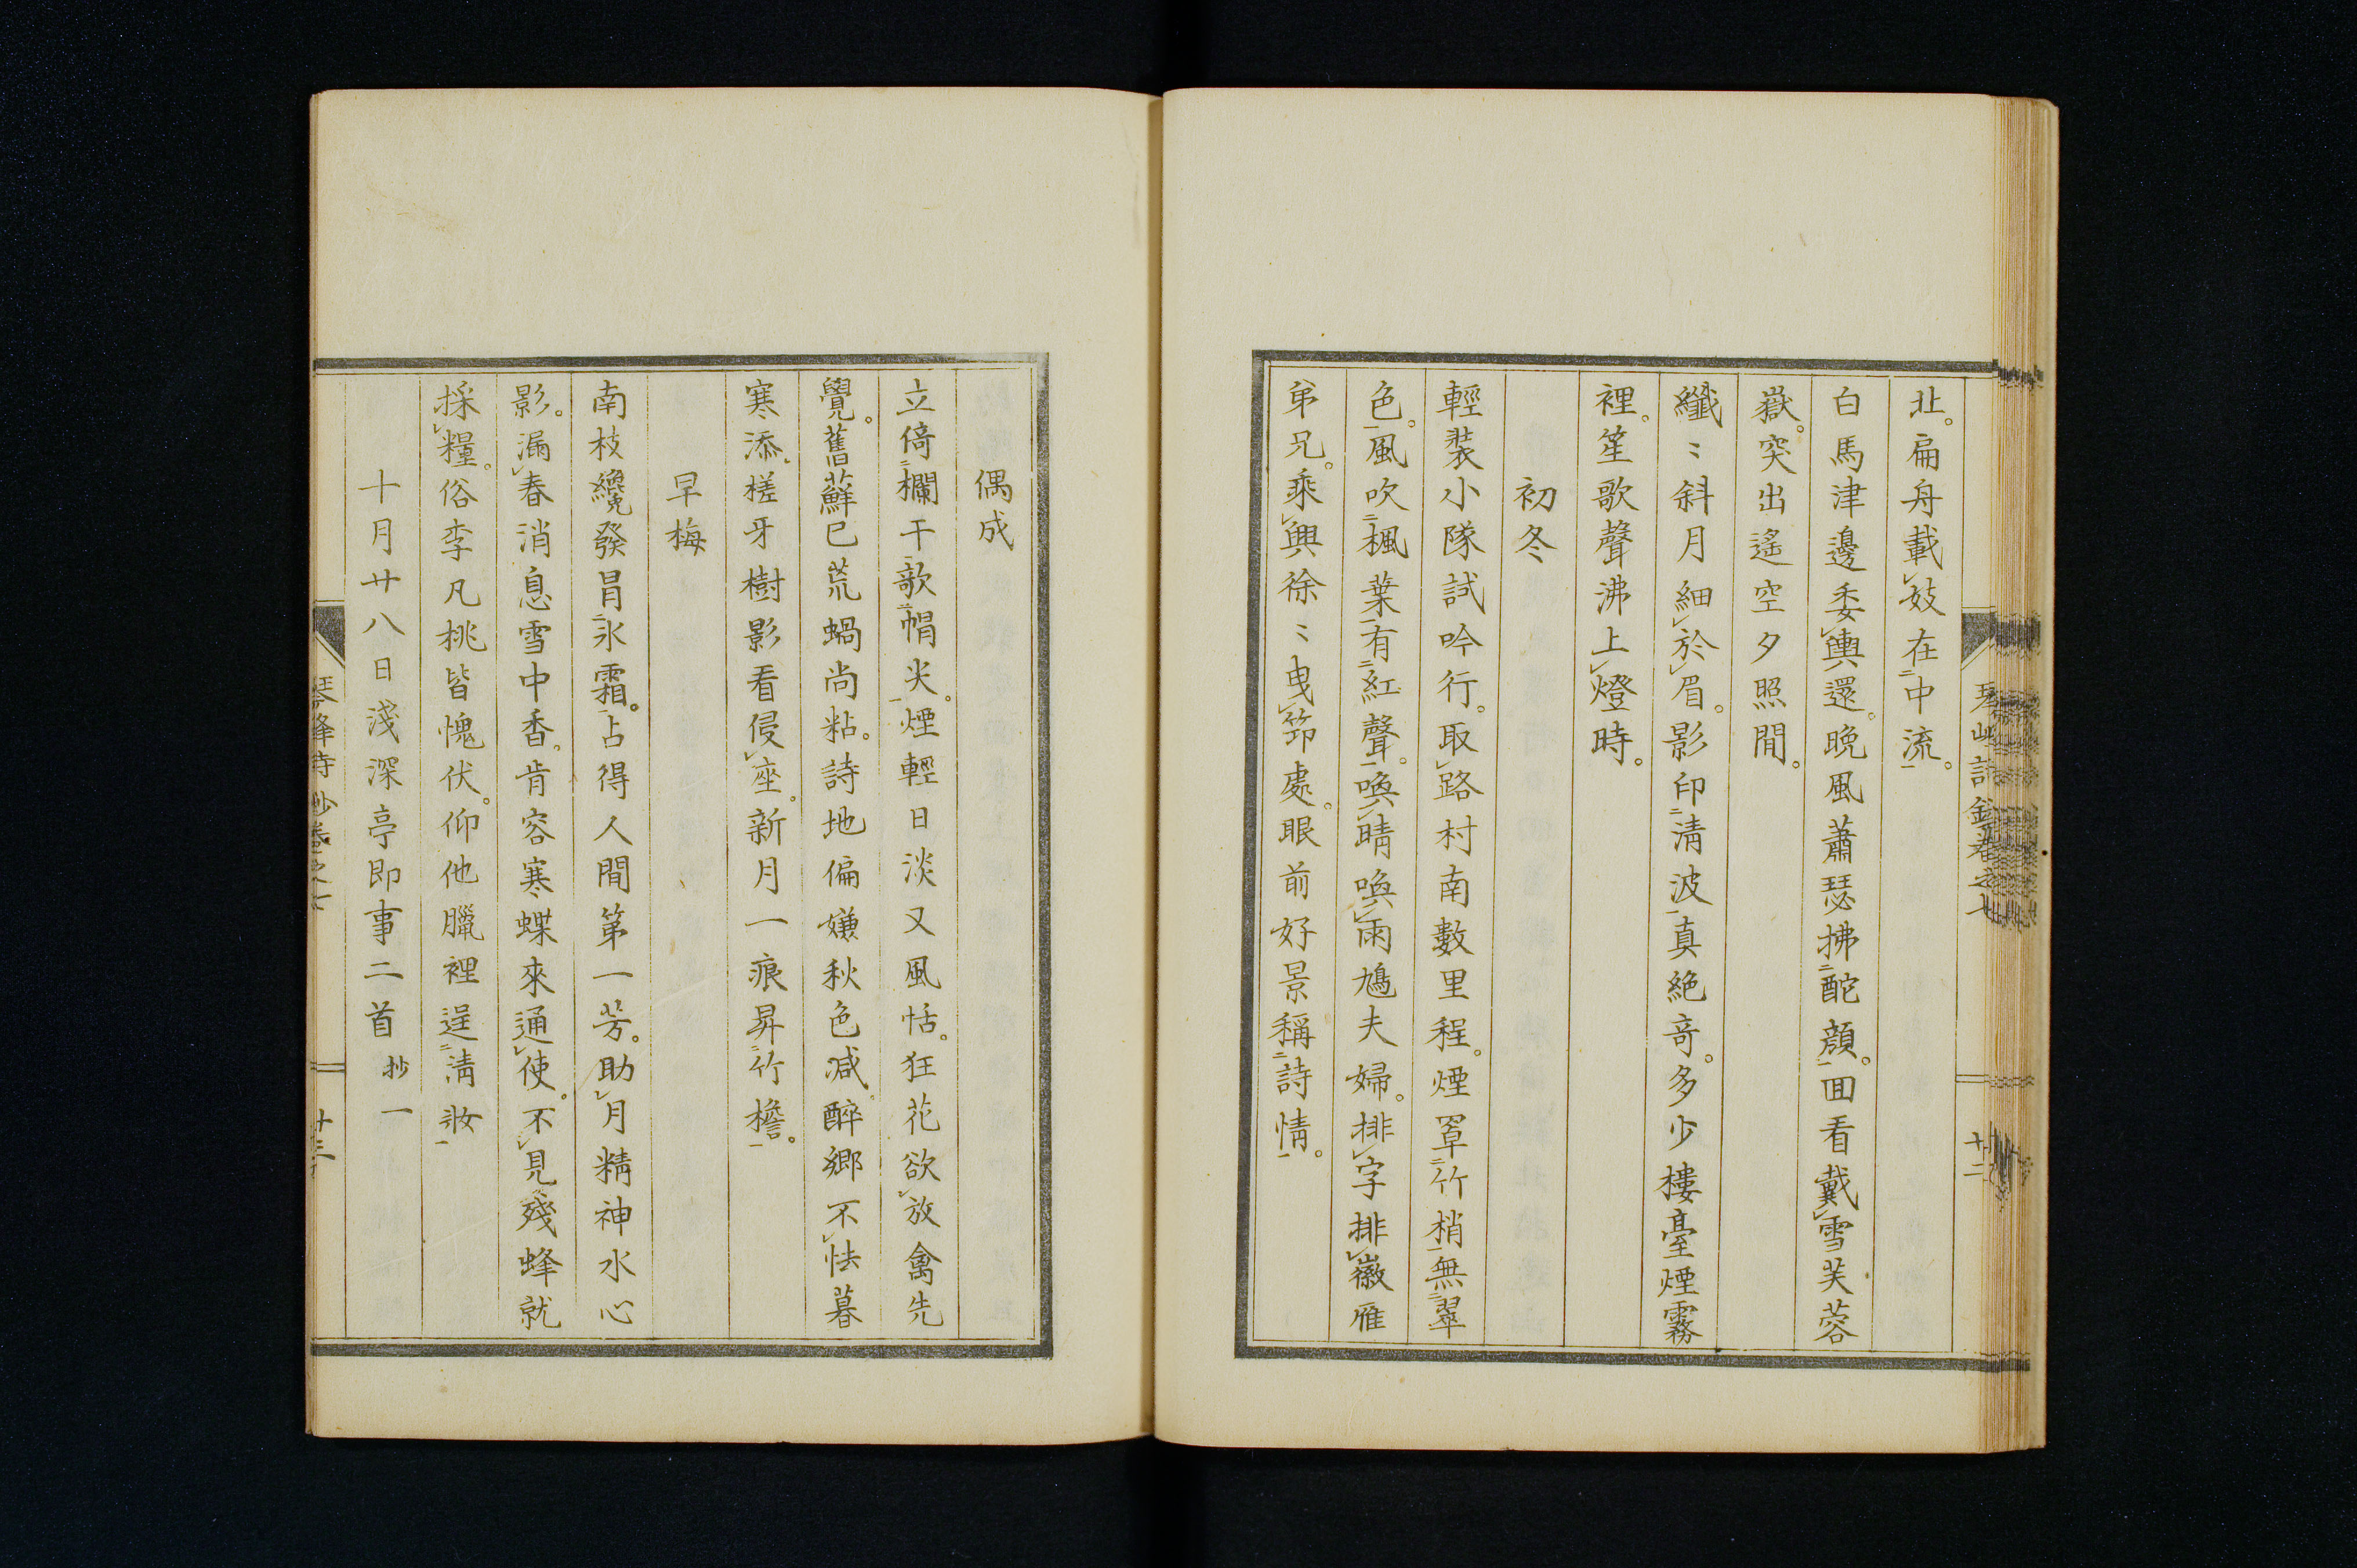 北。扁舟載妓在中流。
白馬津邊委輿還。晚風蕭瑟拂酡顏。回看戴雪芙蓉
嶽。突出遙空夕照間。
纖〻斜月細於眉。影印清波真絕奇。多少樓臺煙霧
裡。笙歌聲沸上燈時。
初冬
輕裝小隊試吟行。取路村南數里程。煙罩竹梢無翠
色。風吹楓葉有紅聲。喚晴喚雨鳩夫婦。排字排徽雁
弟兄。乘興徐〻曳筇處。眼前好景稱詩情。
十二
偶成
立倚欄干欹帽尖。煙輕日淡又風恬。狂花欲放禽先
覺。舊蘚已荒蝸尚粘。詩地偏嫌秋色減。醉鄉不怯暮
寒添。槎牙樹影看侵座。新月一痕昇竹檐。
早梅
南枝纔發冐氷霜。占得人間第一芳。助月精神水心
影。漏春消息雪中香。肯容寒蝶來通使。不見殘蜂就
採糧。俗李凡桃皆愧伏。仰他臘裡逞清妝
十月廿八日淺深亭即事二首 抄一
琴峰詩鈔卷之七
十三